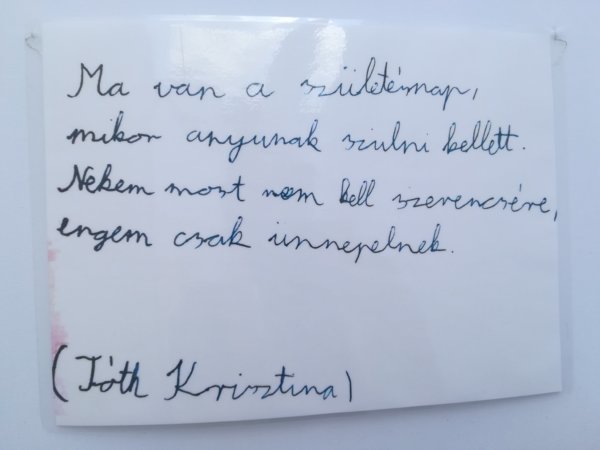 Ma van a születésnap,
mikor anyunak szülni kellett.
Nekem most nem kell szerencsére,
engem csak ünnepelnek.
(Tóth Krisztina)